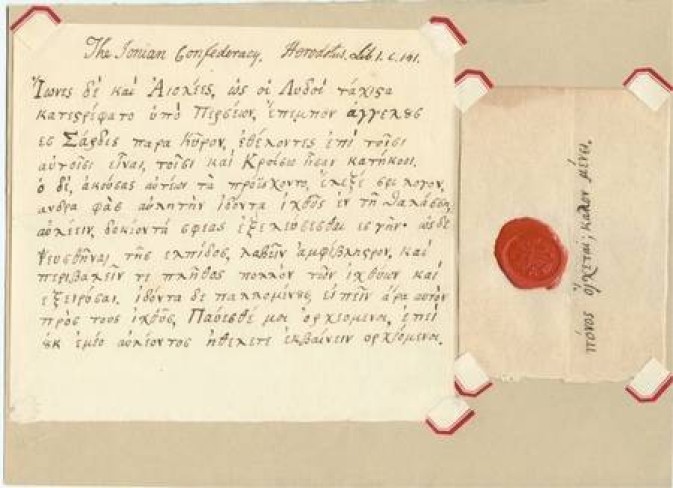 The Ionian Confederacy. Herodotus. Lib. 1. c. 141.
Ἴωνες δὲ καὶ Αἰολέες, ὡς οἱ Λυδοὶ τάχιϛα
κατεϛρέφατο ὑπὸ Περσέων, ἔπεμπον ἀγγέλȣς
ες Σάρδις παρα Κῦρον, ἐθέλοντες ἐπὶ τοῖσι
αὐτοῖσι εἶναι, τοῖσι καὶ Κροίσω ἦσαν κατήκοοι.
ὁ δὲ, ἀκούσας αὐτέων τὰ προΐσχοντο, ἔλεξέ σφι λογον,
ανδρα φὰς αὐλητὴν ἰδόντα ἰχθῦς ἐν τῇ θαλάσσῃ,
αὐλέειν, δοκέοντά σφεας ἐξελεύσεσθαι ες γῆν· ὡς δὲ
ψευσθῆναι τῆς ελπίδος, λαβεῖν ἀμφίβληϛρον, καὶ
περιβαλεῖν τε πλῆθος πολλὸν τῶν ἰχθύων καὶ
ἐξειρύσαι. ἰδόντα δε παλλομένȣς, εἰπεῖν ἄρα αυτὸν
πρὸς τους ἰχθῦς, Παύεσθέ μοι ὀρχεόμενοι, ἐπεὶ
ȣκ ἐμέο αὐλέοντος ἠθέλετε ἐκβαίνειν ὀρχεόμενοι.
πόνος οἴχεται; καλον μένει.